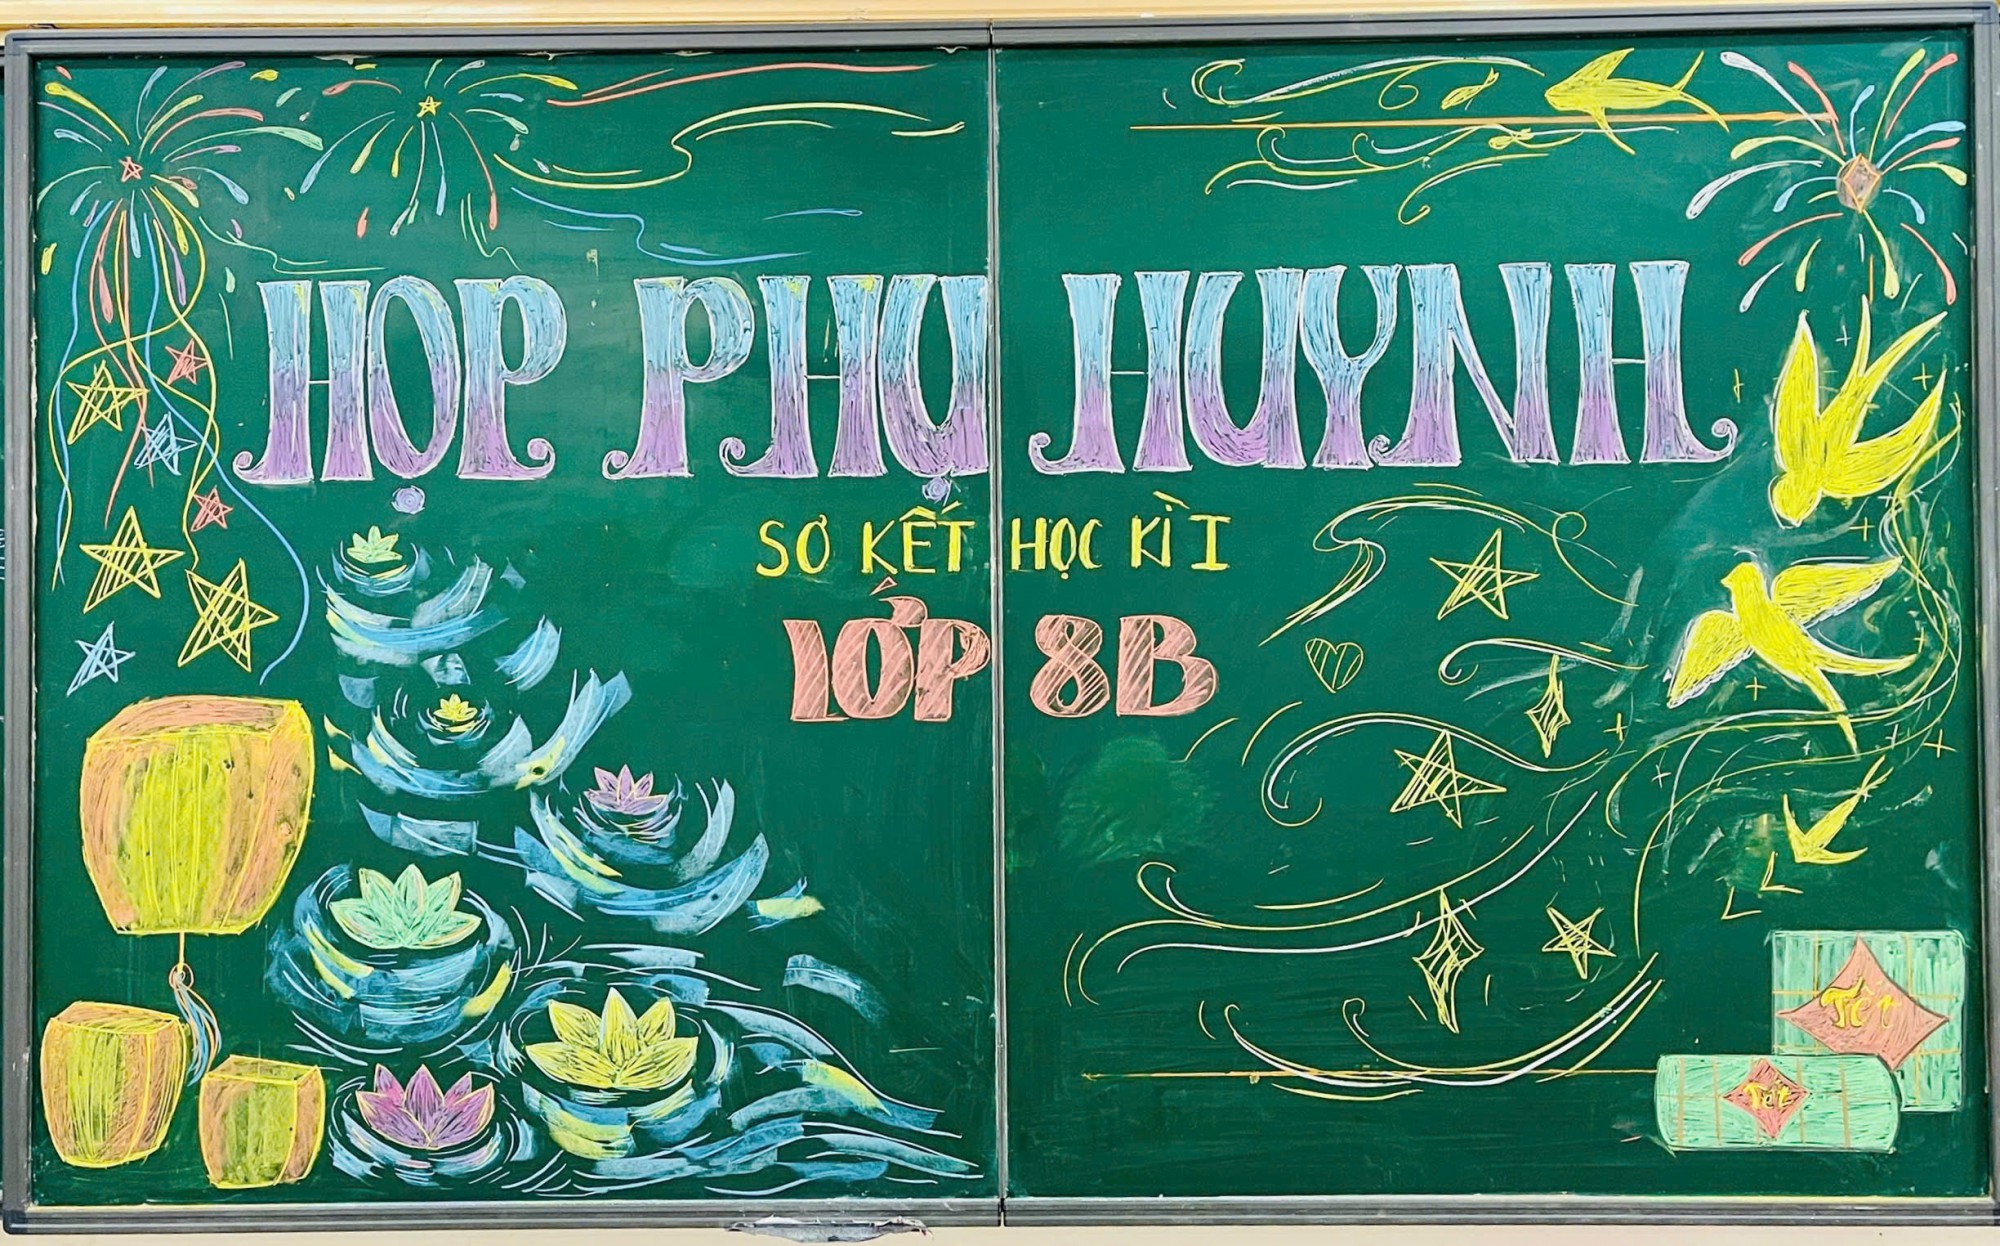 HỌP PHỤ HUYNH
SƠ KẾT HỌC KÌ I
LỚP 8B
Tết
Tết